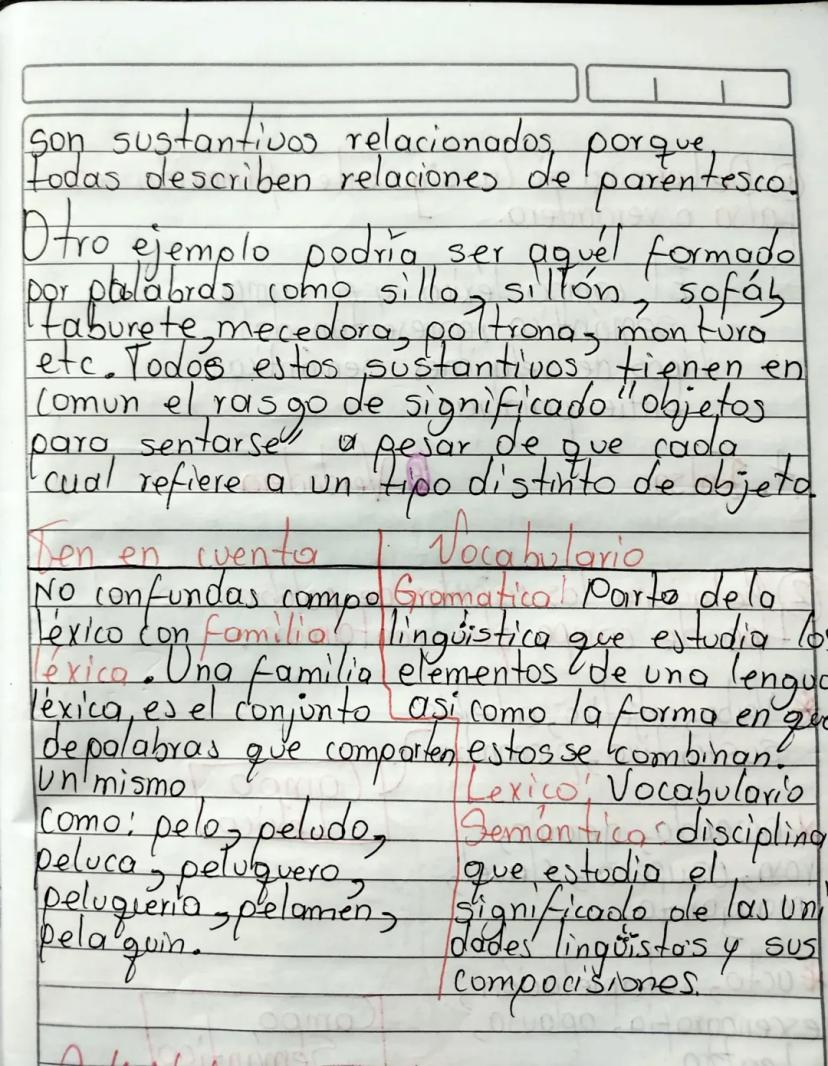 son sustantivos relacionados porque
todas describen relaciones de parentesco.
Otro ejemplo podría ser aquél formado
por palabras como silla, sillón, sofá,
taburete, mecedora, poltrona, montura
etc. Todos estos sustantivos tienen en
comun el rasgo de significado "objetos
para sentarse" a pesar de que cada
cual refiere a un tipo distinto de objeto.
Ten en cuenta
No confundas campo
léxico con familia
léxica. Una familia
léxica, es el conjunto
de palabras que comparten
un mismo
como: pelo, peludo,
peluca, peluquero,
peluqueria, pelamen,
pelaquin.
Vocabulario
Gramatica: Parte de la
lingüistica que estudia los
elementos de una lengua
asi como la forma en que
estos se combinan.
Lexico: Vocabulario
Semántica: disciplina
que estudia el
significado de las uni
dades lingüistas y sus
compocisiones.